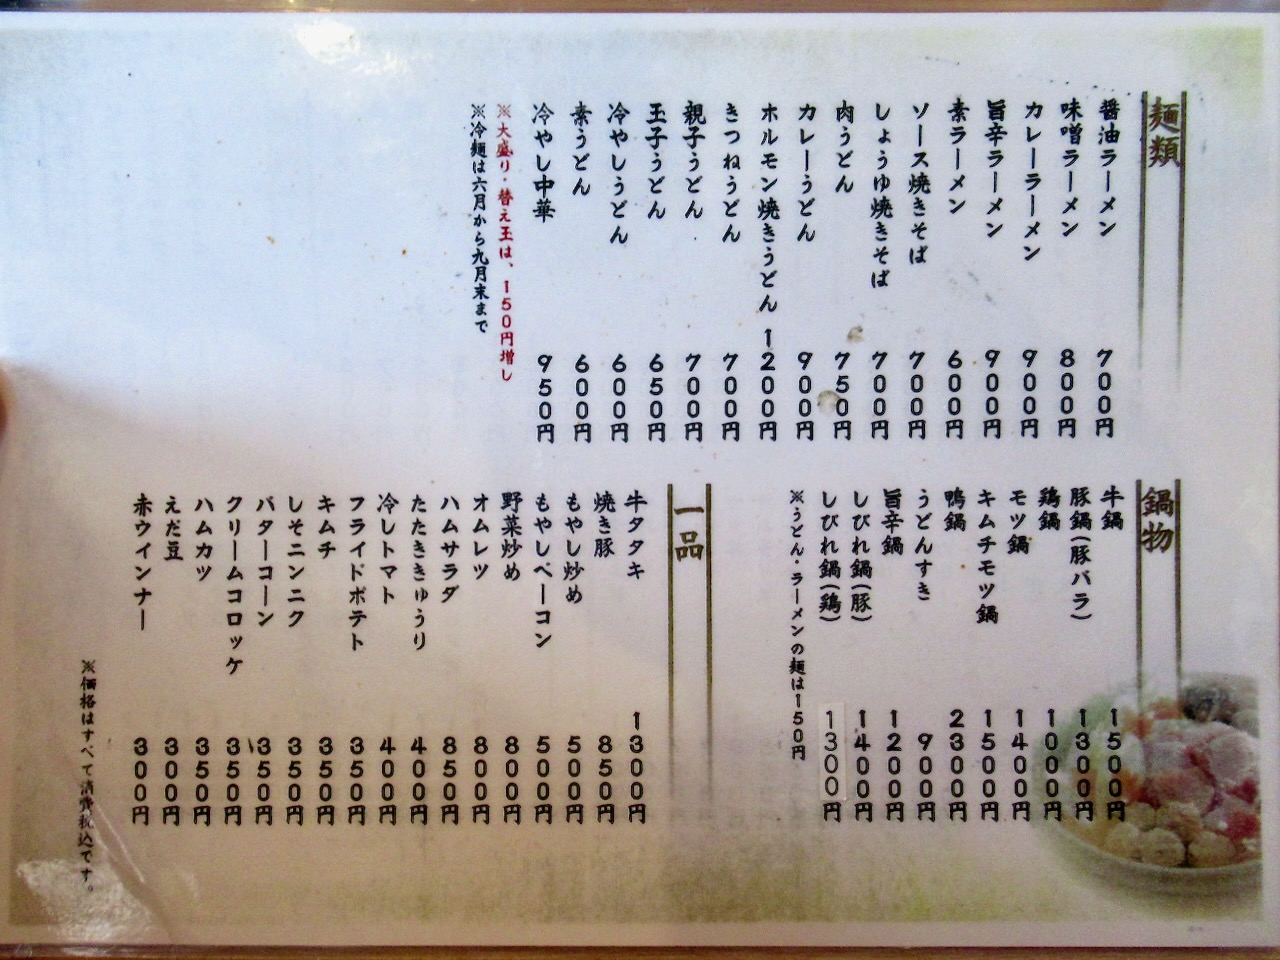 麺類
醤油ラーメン 700円
味噌ラーメン 800円
カレーラーメン 900円
旨辛ラーメン 900円
素ラーメン 600円
ソース焼きそば 700円
しょうゆ焼きそば 700円
肉うどん 750円
カレーうどん 900円
ホルモン焼きうどん 1200円
きつねうどん 700円
親子うどん 700円
玉子うどん 650円
冷やしうどん 600円
素うどん 600円
冷やし中華 950円
※大盛り・替え玉は、150円増し
※冷麺は六月から九月末まで
鍋物
牛鍋 1500円
豚鍋(豚バラ) 1300円
鶏鍋 1000円
モツ鍋 1400円
キムチモツ鍋 1500円
鴨鍋 2300円
うどんすき 900円
旨辛鍋 1200円
しびれ鍋(豚) 1400円
しびれ鍋(鶏) 1300円
※うどん・ラーメンの麺は150円
一品
牛タタキ 1300円
焼き豚 850円
もやし炒め 500円
もやしベーコン 500円
野菜炒め 800円
オムレツ 800円
ハムサラダ 850円
たたききゅうり 400円
冷しトマト 400円
フライドポテト 350円
キムチ 350円
しそニンニク 350円
バターコーン 350円
クリームコロッケ 350円
ハムカツ 350円
えだ豆 300円
赤ウインナー 300円
※価格はすべて消費税込です。